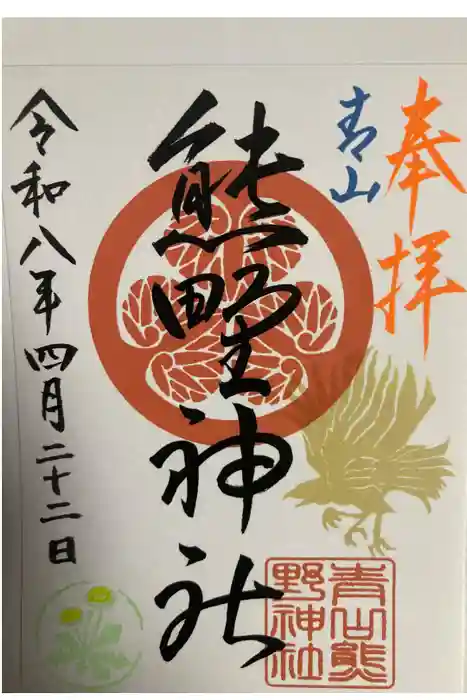 奉拝
青山
熊野神社
令和八年四月二十二日
青山熊
野神社